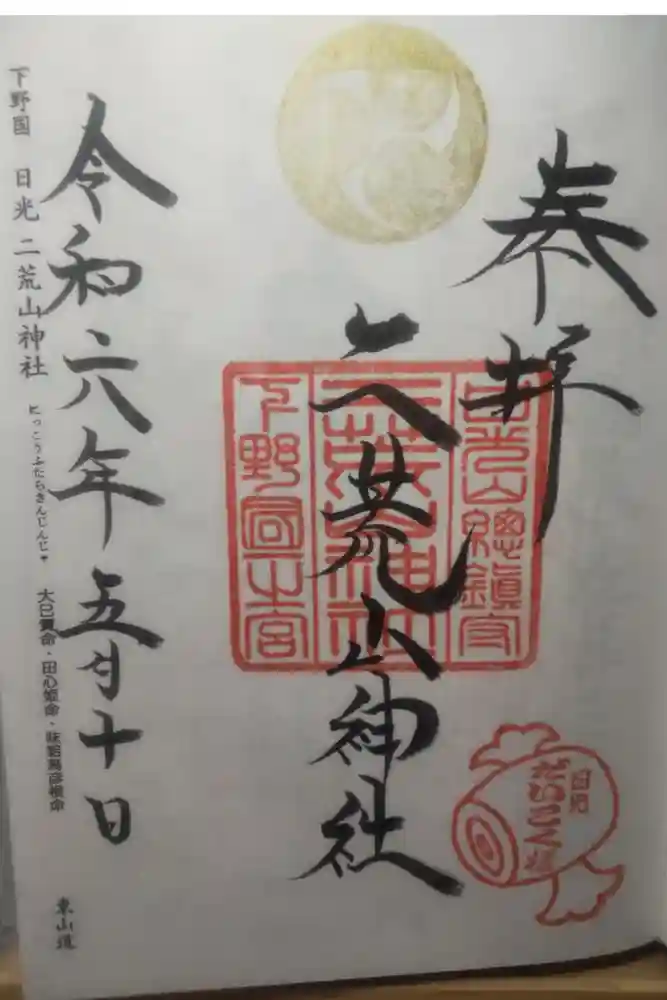 奉拝
二荒山神社
日光山總鎮守
二荒山神社
下野國一之宮
日光
だいこく様
令和六年五月十日
下野国 日光二荒山神社 にっこうふたらさんじんじゃ 大己貴命・田心姫命・味耜高彦根命 東山道